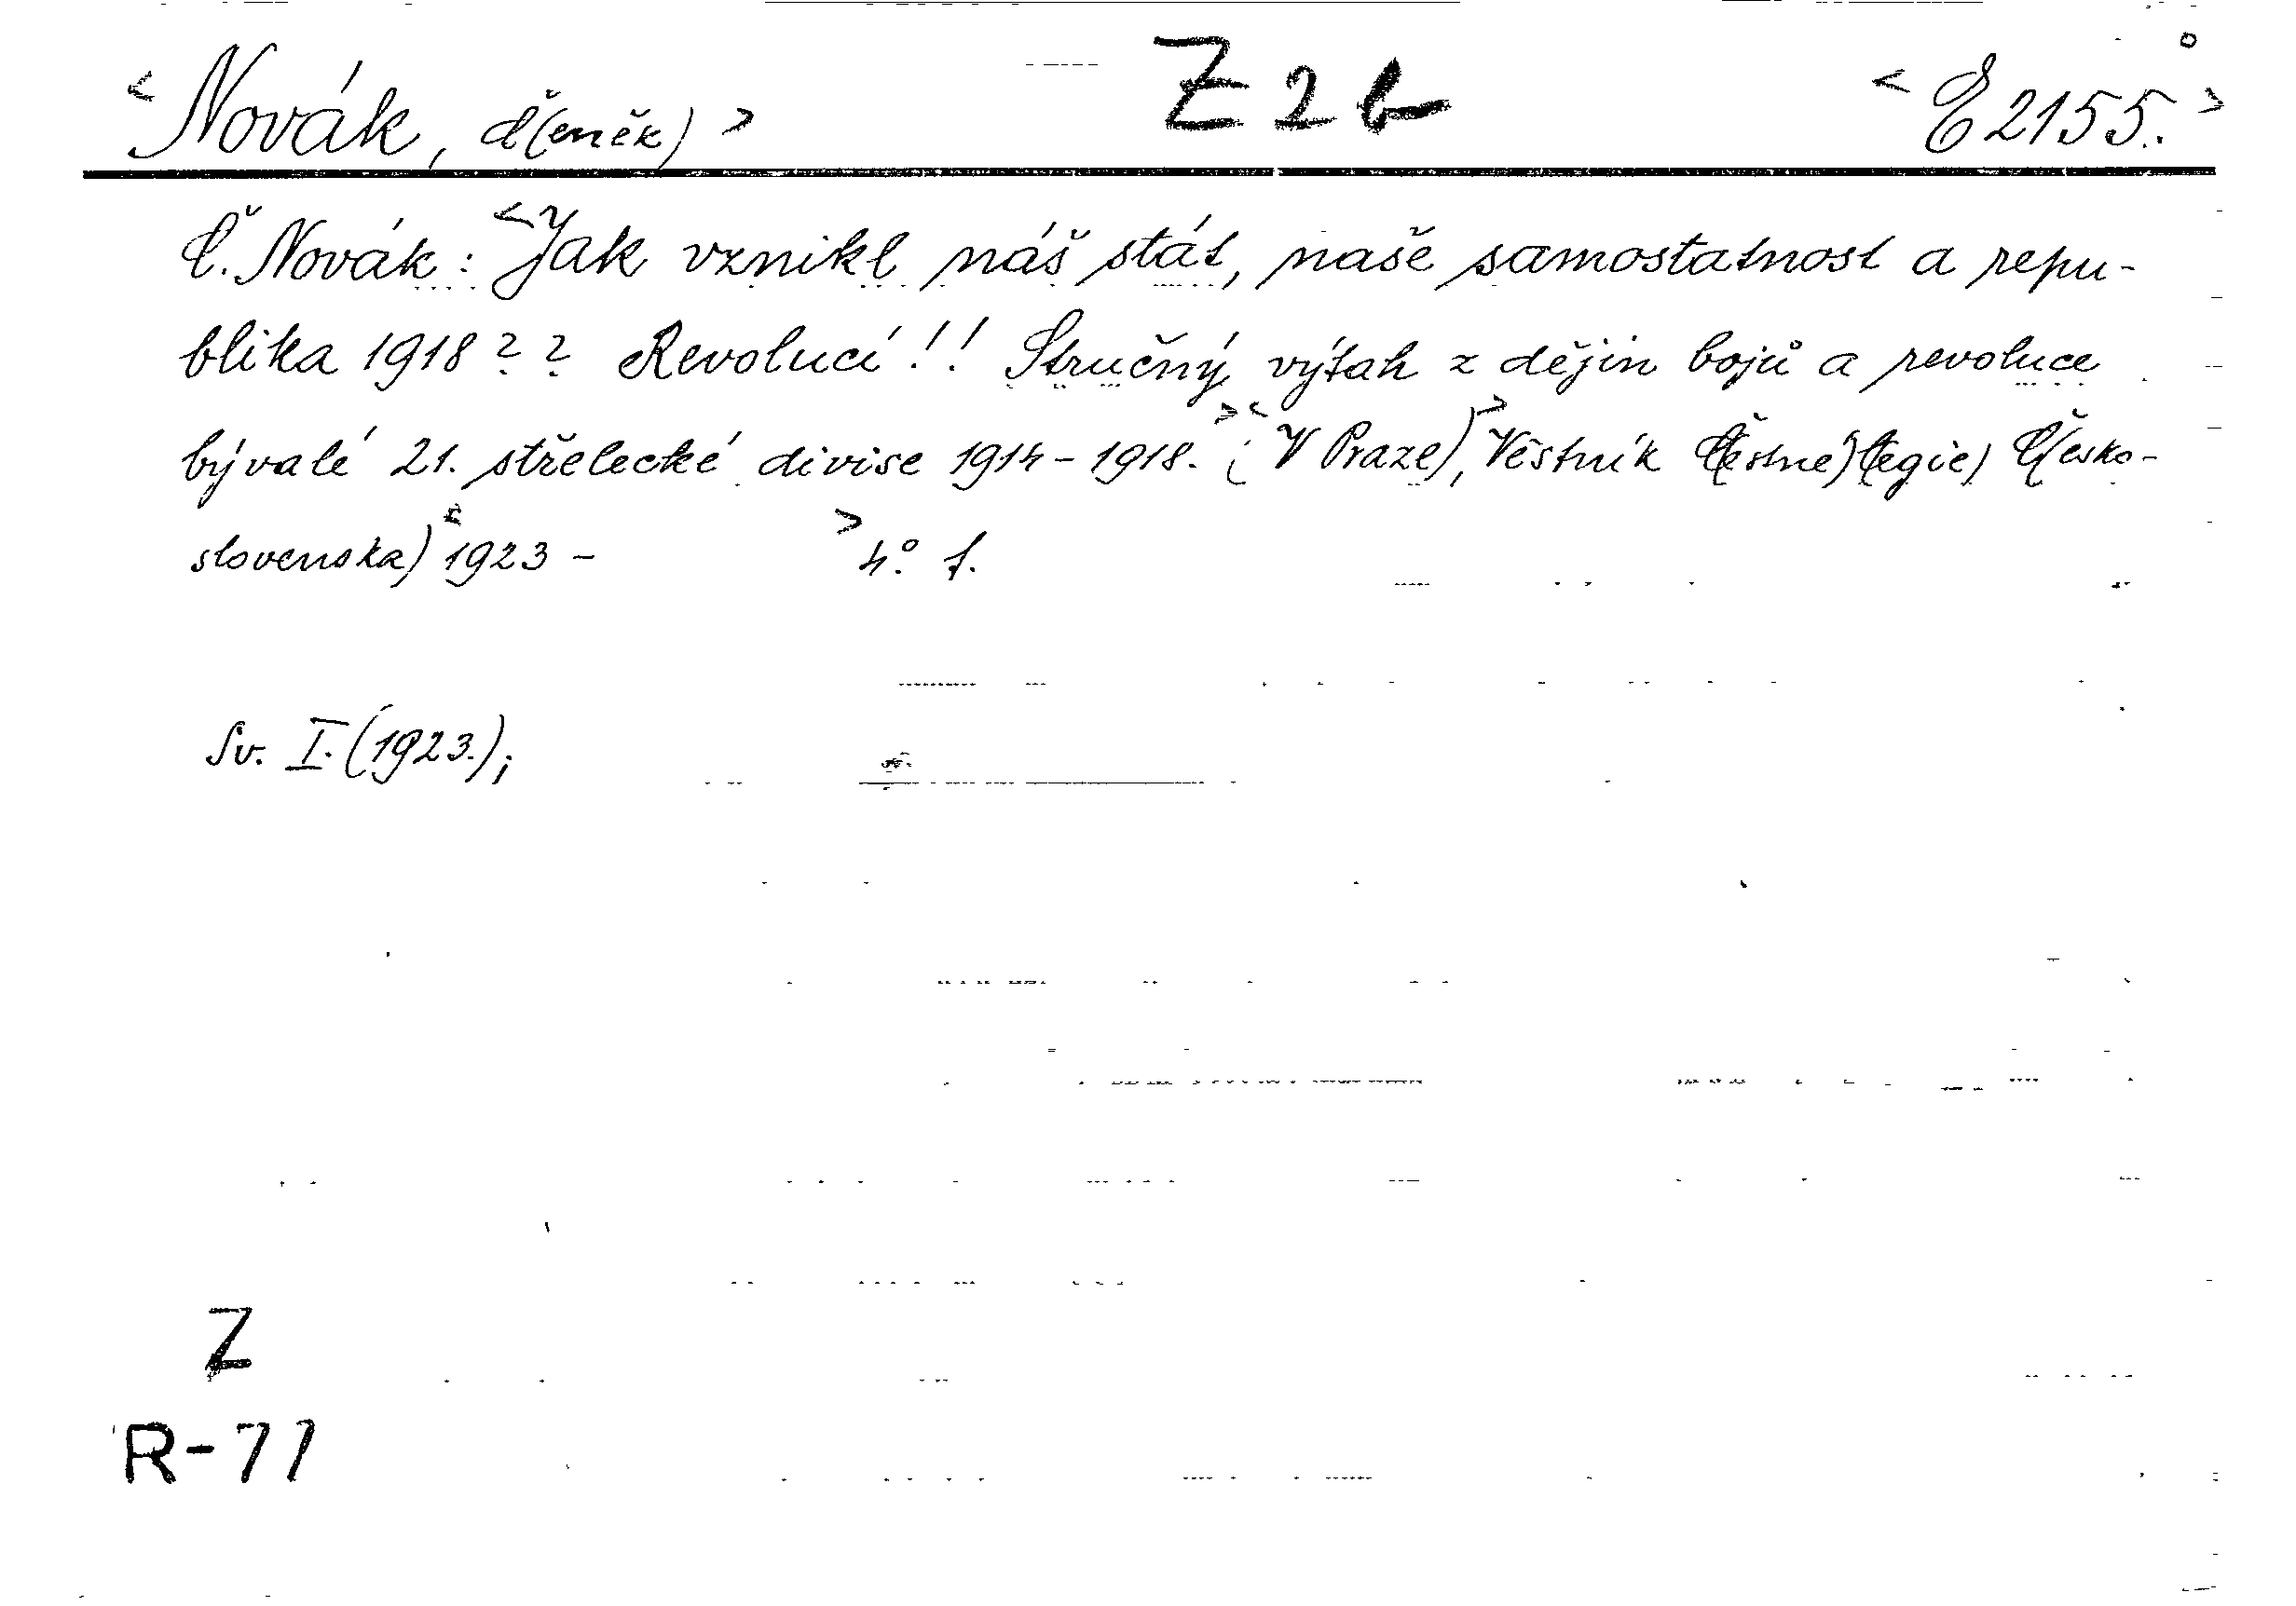 <Novák, Č(eněk)> Z 2 b <E 2155.>
Č. Novák: <Jak vznikl náš stát, naše samostatnost a repu-
blika 1918?? Revolucí!! Stručný výtah z dějin bojů a revoluce
bývalé 21. střelecké divise 1914-1918.> <(V Praze),> Věstník Č(estné) l(egie) Č(esko-
slovenska) <1923 - > 4° f.
Sv. I. (1923.);
Z
R-77